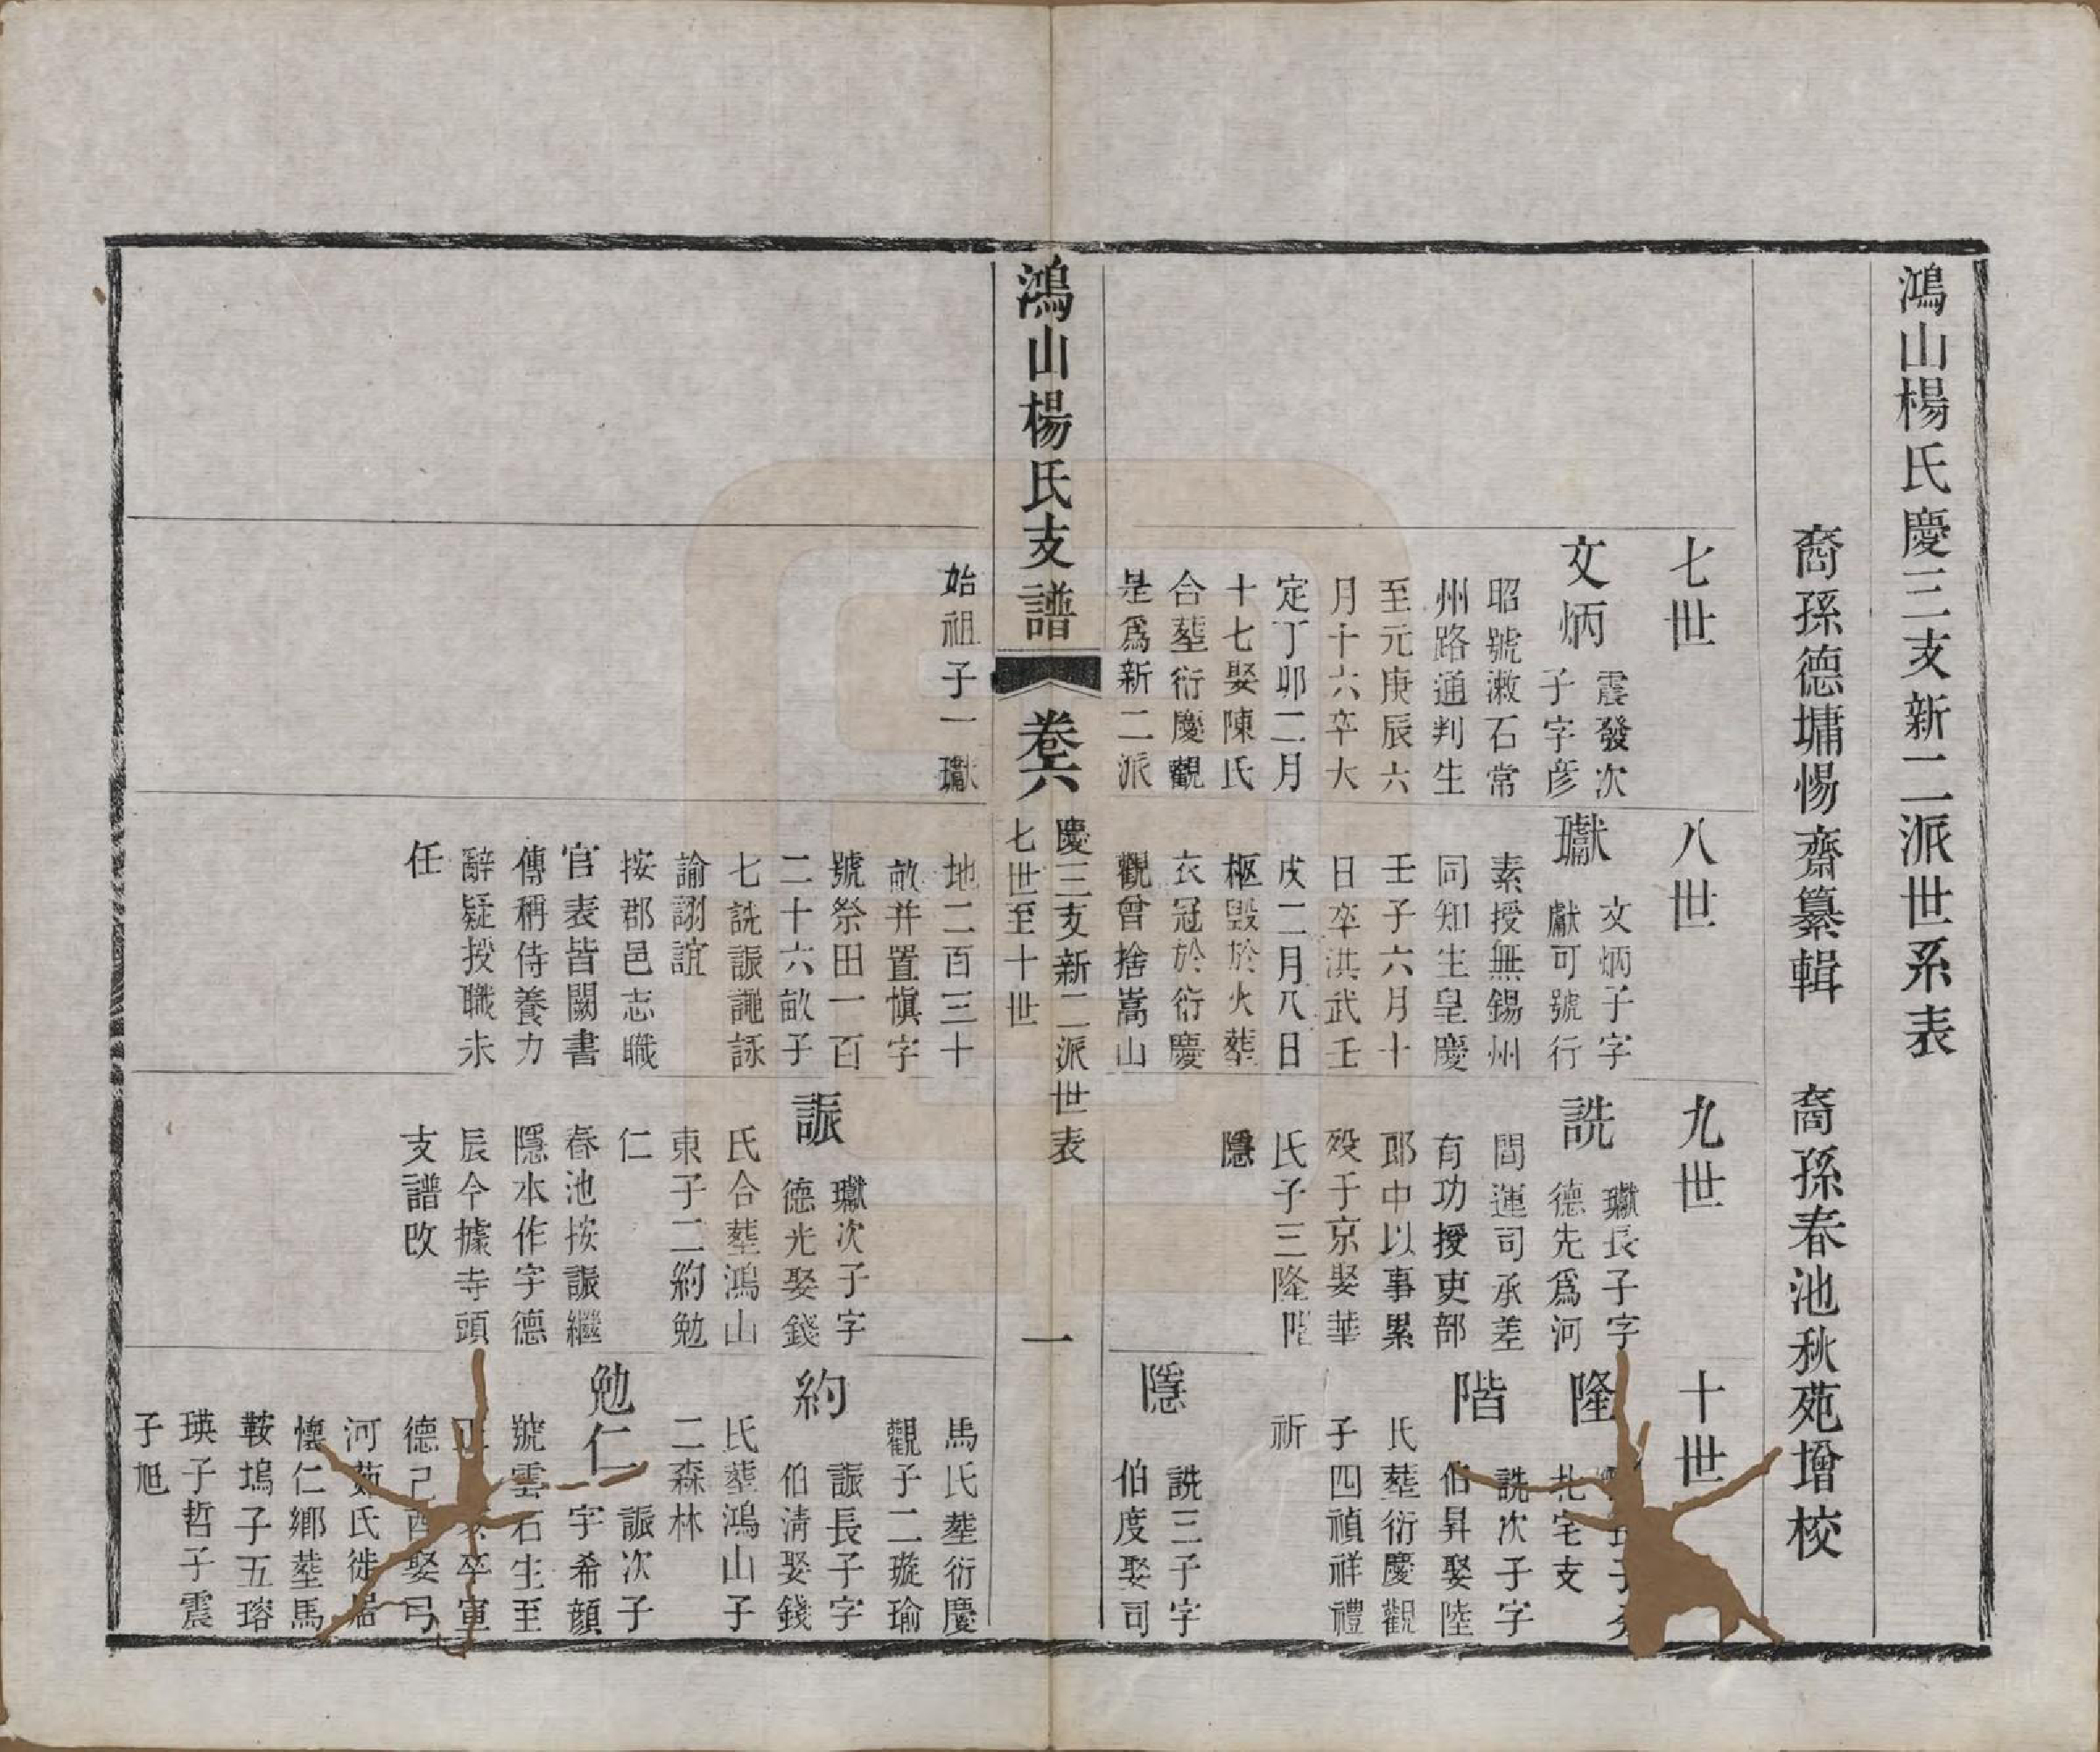 鴻山楊氏慶三支新二派世系表
裔孫德墉惕齋纂輯　裔孫春池秋苑增校
七世
文炳
震發次
子字彦
昭號漱石常
州路通判生
至元庚辰六
月十六卒大
定丁卯二月
十七娶陳氏
合塟衍慶觀
是爲新二派
始祖子一瓛
八世
瓛
文炳子字
獻可號行
素授無錫州
同知生皇慶
壬子六月十
日卒洪武壬
戌二月八日
柩毁於火塟
衣冠於衍慶
觀曾捨嵩山
地二百三十
畝并置愼字
號祭田一百
二十六畝子
七詵誫譝詠
諭詡誼
按郡邑志職
官表皆闕書
傳稱侍養力
辭疑授職未
任
九世
詵
瓛長子字
德先爲河
間運司承差
有功授吏部
郎中以事累
殁于京娶華
氏子三隆階
隱
誫
瓛次子字
德光娶錢
氏合塟鴻山
東子二約勉
仁
春池按誫繼
隱本作字德
辰今據寺頭
支譜改
十世
隆
長子
北宅支
階
詵次子字
伯昇娶陸
氏塟衍慶觀
子四禎祥禮
祈
隱
詵三子字
伯度娶司
馬氏塟衍慶
觀子二璇瑜
約
誫長子字
伯清娶錢
氏塟鴻山子
二森林
勉仁
誫次子
字希顔
號雲石生至
正 卒宣
德己酉娶
河 氏徙居
懷仁鄉塟馬
鞍塢子五瑢
瑛子哲子震
子旭
鴻山楊氏支譜
卷六
慶三支新二派世表
七世至十世
一